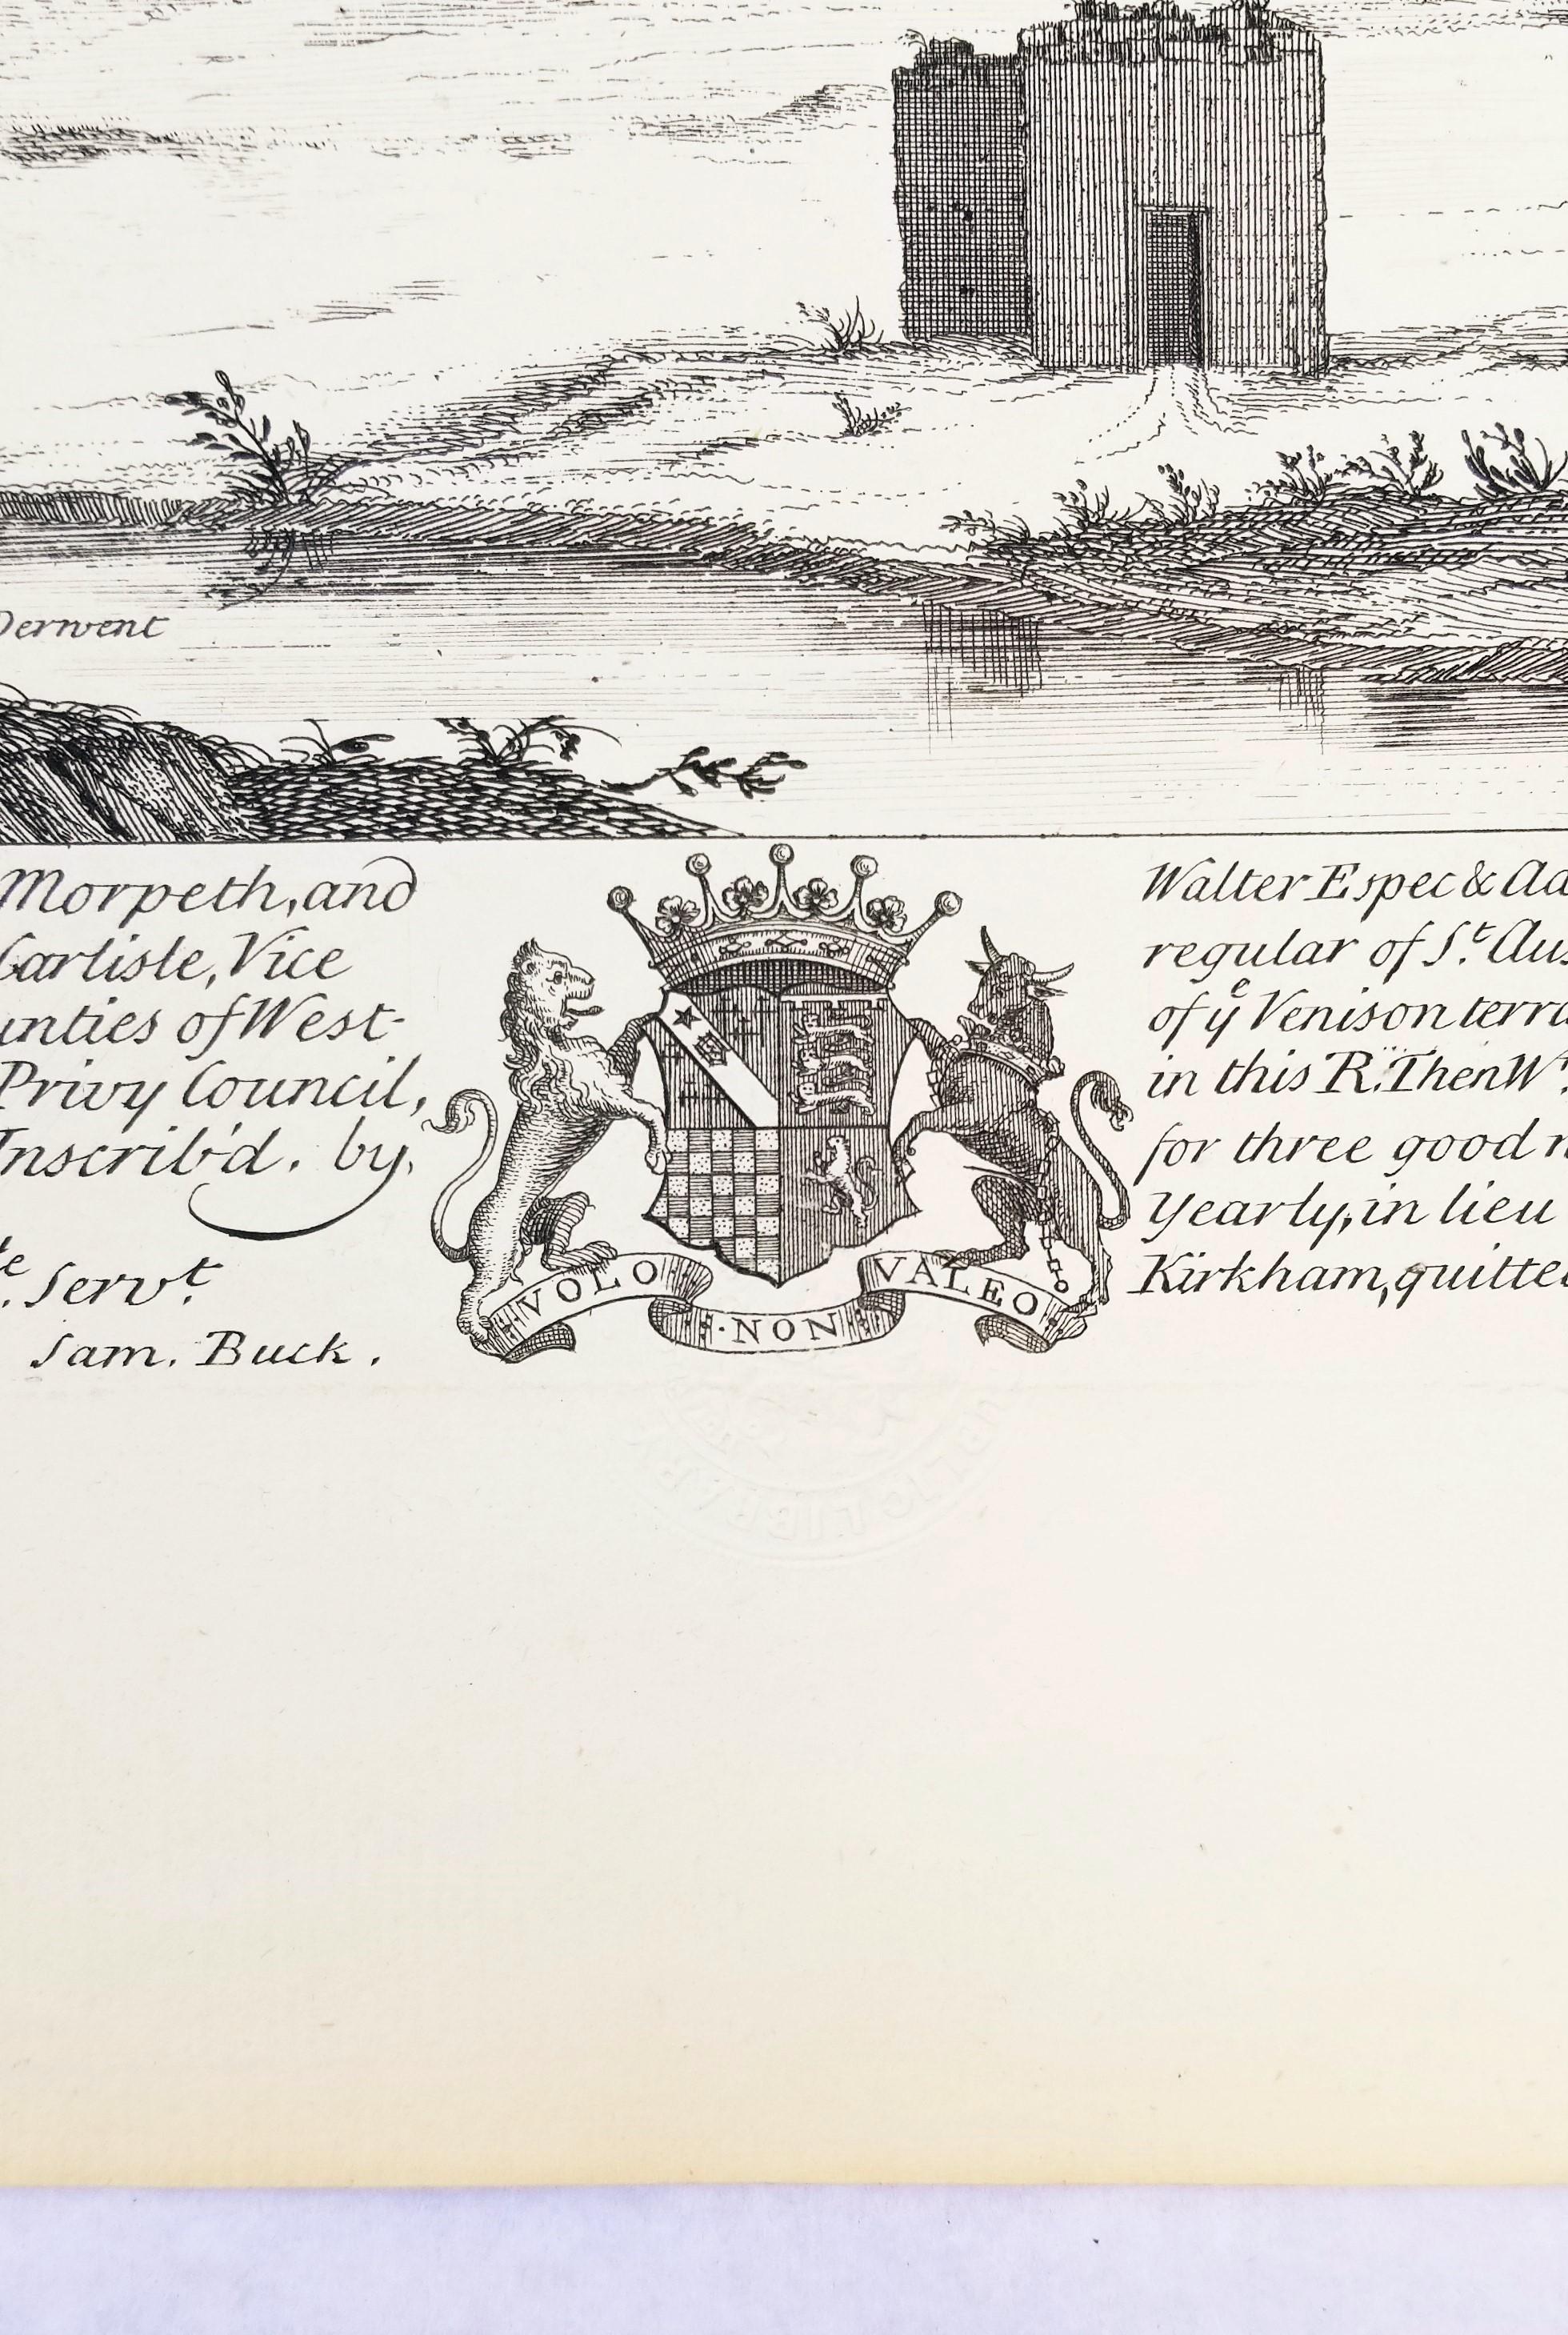 Derwent
Morpeth, and
Carlisle, Vice
unties of West-
Privy Council,
Inscrib'd. by,
te
. Servt.
Sam. Buck.
VOLO
·NON
VALEO
Walter Espec &
regular of St.
of ye Venison
in this R. Then Wt.
for three good
Yearly, in lieu
Kirkham, quitte